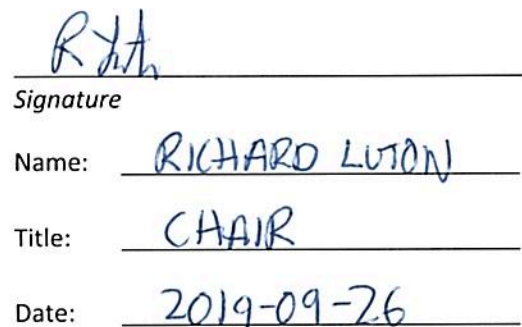 Signature
Name: RICHARD LUTON
Title: CHAIR
Date: 2019-09-26